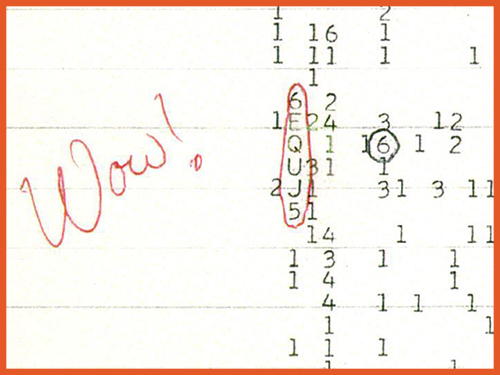 1 2
1 16 1
1 11 1 1
1
6 2
1E24 3 12
Wow!
Q 1 16 1 2
U31 1
2J1 31 3 11
51
14 1 11
1 3 1 1
1 4 1
4 1 1 1
1 1
1 1 1